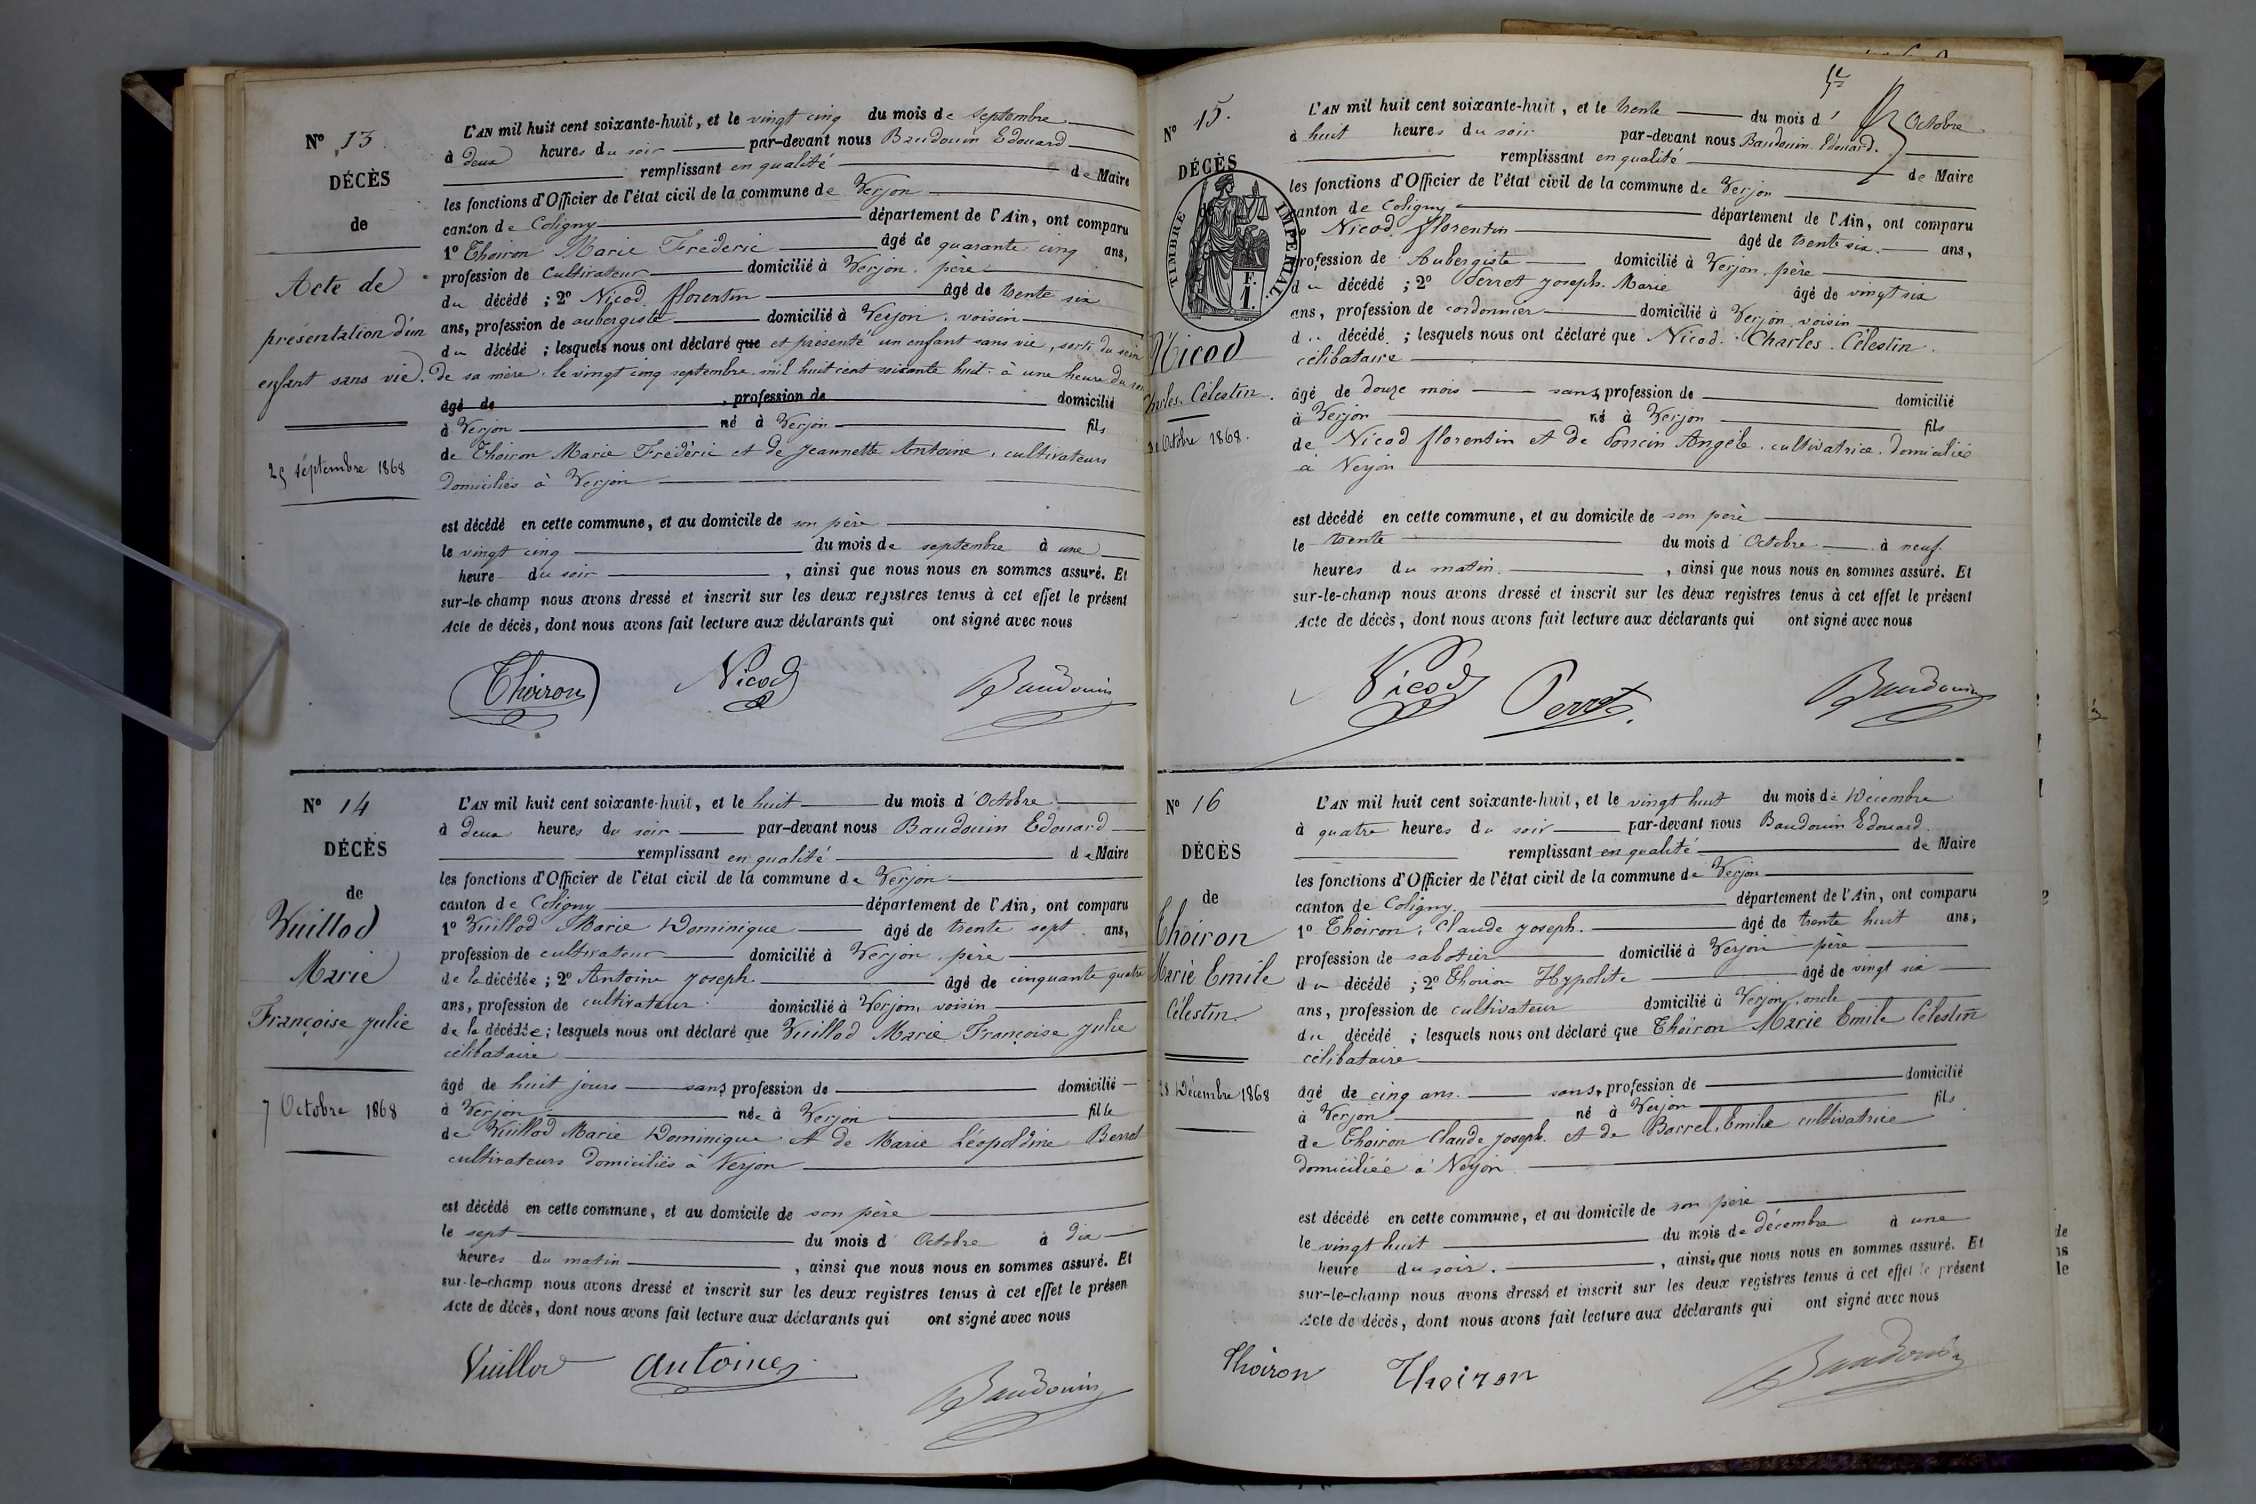 N° 13.
DÉCÈS
de
Acte de
présentation d'un
enfant sans vie.
25 septembre 1868
L'AN mil huit cent soixante-huit, et le vingt cinq du mois de septembre
à deux heures du soir par-devant nous Baudouin Edouard
remplissant en qualité de Maire
les fonctions d'Officier de l'état civil de la commune de Verjon
canton de Coligny département de l'Ain, ont comparu
1° Thoiron Marie Frédéric âgé de quarante cinq ans,
profession de cultivateur domicilié à Verjon, père
du décédé ; 2° Nicod florentin âgé de trente six
ans, profession de aubergiste domicilié à Verjon, voisin
du décédé ; lesquels nous ont déclaré que et présenté un enfant sans vie, sorti du sein
de sa mère, le vingt cinq septembre mil huit cent soixante huit à une heure du soir
âgé de , profession de domicilié
à Verjon né à Verjon fils
de Thoiron Marie Frédéric et de Jeannette Antoine, cultivateurs
domiciliés à Verjon
est décédé en cette commune, et au domicile de son père
le vingt cinq du mois de septembre à une
heure du soir , ainsi que nous nous en sommes assuré. Et
sur-le-champ nous avons dressé et inscrit sur les deux registres tenus à cet effet le présent
Acte de décès, dont nous avons fait lecture aux déclarants qui ont signé avec nous
Thoiron Nicod Baudouin
N° 14
DÉCÈS
de
Vuillod
Marie
Françoise Julie
7 Octobre 1868
L'AN mil huit cent soixante-huit, et le huit du mois d'Octobre
à deux heures du soir par-devant nous Baudouin Edouard
remplissant en qualité de Maire
les fonctions d'Officier de l'état civil de la commune de Verjon
canton de Coligny département de l'Ain, ont comparu
1° Vuillod Marie Dominique âgé de trente sept ans,
profession de cultivateur domicilié à Verjon, père
de la décédée ; 2° Antoine Joseph âgé de cinquante quatre
ans, profession de cultivateur domicilié à Verjon, voisin
de la décédée ; lesquels nous ont déclaré que Vuillod Marie Françoise Julie
célibataire
âgé de huit jours sans profession de domicilié
à Verjon née à Verjon fille
de Vuillod Marie Dominique et de Marie Léopoldine Berrod
cultivateurs domiciliés à Verjon
est décédé en cette commune, et au domicile de son père
le sept du mois d Octobre à dix
heures du matin , ainsi que nous nous en sommes assuré. Et
sur-le-champ nous avons dressé et inscrit sur les deux registres tenus à cet effet le présen
Acte de décès, dont nous avons fait lecture aux déclarants qui ont signé avec nous
Vuillod antoine Baudouin
N° 15.
DÉCÈS
TIMBRE IMPÉRIAL.
F.
1.
Nicod
Charles Célestin.
30 Octobre 1868.
L'AN mil huit cent soixante-huit, et le trente du mois d' Octobre
à huit heures du soir par-devant nous Baudouin Edouard.
remplissant en qualité de Maire
les fonctions d'Officier de l'état civil de la commune de Verjon
canton de Coligny département de l'Ain, ont comparu
Nicod florentin âgé de trente six ans,
profession de Aubergiste domicilié à Verjon, père
du décédé ; 2° Perret Joseph Marie âgé de vingt six
ans, profession de cordonnier domicilié à Verjon voisin
du décédé ; lesquels nous ont déclaré que Nicod Charles Célestin
célibataire
âgé de douze mois sans profession de domicilié
à Verjon né à Verjon fils
de Nicod florentin et de Poncin Angèle, cultivatrice, domiciliée
à Verjon
est décédé en cette commune, et au domicile de son père
le trente du mois d Octobre à neuf
heures du matin. , ainsi que nous nous en sommes assuré. Et
sur-le-champ nous avons dressé et inscrit sur les deux registres tenus à cet effet le présent
Acte de décès, dont nous avons fait lecture aux déclarants qui ont signé avec nous
Nicod Perret. Baudouin
N° 16
DÉCÈS
de
Thoiron
Marie Emile
Célestin.
28 Décembre 1868
L'AN mil huit cent soixante-huit, et le vingt huit du mois de Décembre
à quatre heures du soir par-devant nous Baudouin Edouard
remplissant en qualité de Maire
les fonctions d'Officier de l'état civil de la commune de Verjon
canton de Coligny. département de l'Ain, ont comparu
1° Thoiron, Claude Joseph. âgé de trente huit ans,
profession de sabotier domicilié à Verjon père
du décédé ; 2° Thoiron Hypolite âgé de vingt six
ans, profession de cultivateur domicilié à Verjon, oncle
du décédé ; lesquels nous ont déclaré que Thoiron Marie Emile Célestin
célibataire
âgé de cinq ans. sans, profession de domicilié
à Verjon né à Verjon fils
de Thoiron Claude Joseph. et de Borrel, Emilie cultivatrice
domiciliée à Verjon
est décédé en cette commune, et au domicile de son père
le vingt huit du mois de décembre à une
heure du soir. , ainsi que nous nous en sommes assuré. Et
sur-le-champ nous avons dressé et inscrit sur les deux registres tenus à cet effet le présent
Acte de décès, dont nous avons fait lecture aux déclarants qui ont signé avec nous
Thoiron Thoiron Baudouin